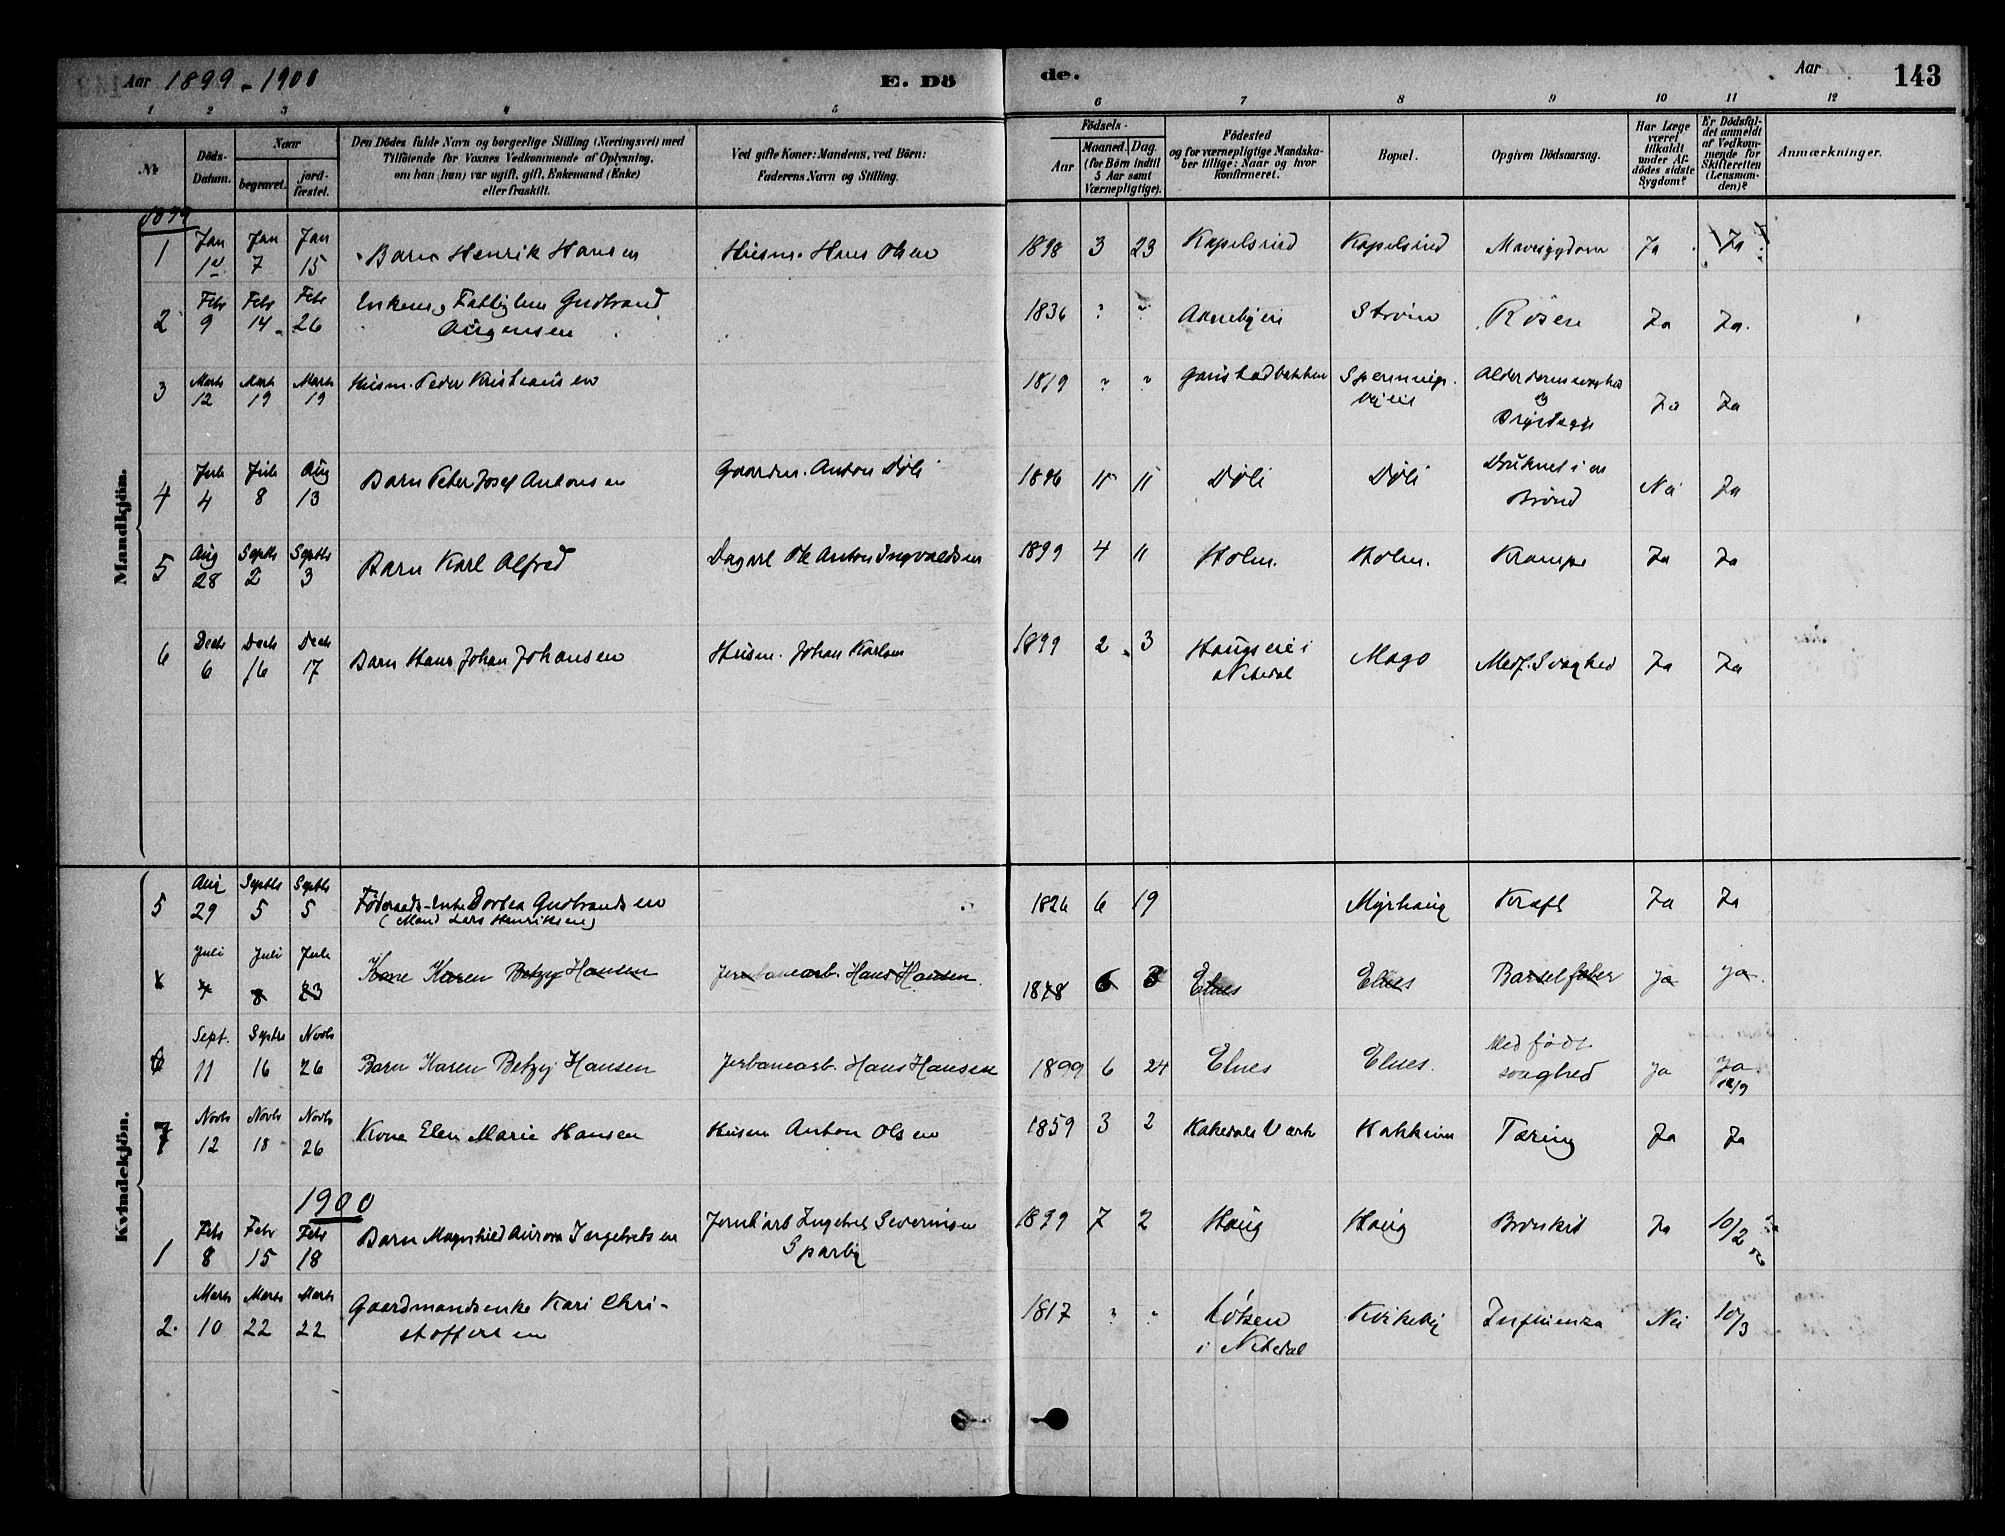 Aar 1899-1900 E. Dö de. Aar 143
1 2 3 4 5 6 7 8 9 10 11 12
No
Döds-Datum.
Naar
begravet.
jord-fæstet.
Den Dödes fulde Navn og borgerlige Stilling (Næringsvei) med
Tilföiende for Voxnes Vedkommende af Oplysning,
om han (hun) var ugift, gift, Enkemand (Enke)
eller fraskilt.
Ved gifte Koner: Mandens, ved Börn:
Faderens Navn og Stilling.
Födsels-
Aar
Maaned. Dag.
(for Børn indtil
5 Aar samt
Værnepligtige).
Födested
og for værnepligtige Mandska-
ber tillige: Naar og hvor
Konfirmeret.
Bopæl.
Opgiven Dödsaarsag.
Har Læge
været
tilkaldt
under Af-
dödes sidste
Sygdom?
Er Dödsfal-
det anmeldt
af Vedkom-
mende for
Skifteretten
(Lensman-
den)?
Anmærkninger.
Mandkjön.
1899
1 Jan Jan 7 Jan 15 Barn Henrik Hansen Husm. Hans Olsen 1898 3 23 Kapelsrud Kapelsrud Mavesygdom Ja Ja
2 Febr 9 Febr 14 Febr 26 Enkem. Gudbrand
1836 " " Strøm Ja Ja.
3 Marts 12 Marts 19 Marts 19 Husm. Peder Kristiansen 1819 " " Ja Ja
4 Juli 4 Juli 8 Aug 13 Barn Peter Josef Antonsen Gaardm. Anton Døli 1896 11 11 Døli Døli Druknet i en
Brønd Nei Ja
5 Aug 28 Septb 2 Septb 3 Barn Karl Alfred Ole Anton Ingvaldsen 1899 4 11 Holm. Holm. Krampe Ja Ja
6 Decb 6 Decb 16 Decb 17 Barn Hans Johan Johansen Husm. Johan Karlsen 1899 2 3 Haugseie i
Nitedal Mago Medf. Svaghed Ja Ja
Kvindekjön.
5 Aug 29 Septb 5 Septb 5 Føderaads-Enke Dorthea Gudbrandsen
(Mand Lars Henriksen) 1826 6 19 Myrhaug Kræft Ja Ja
Juli 4 Juli 8 Juli 23 Kone Karen Betzy Hansen Jernbanearb. Hans Hansen. 1878 6 3 Elnes Elnes Barselfeber Ja Ja
6 Sept. 11 Septbr 16 Novb 26 Barn Karen Betzy Hansen Jerbanearb. Hans Hansen 1899 6 24 Elnes Elnes. Medfødt
svaghed Ja Ja.
12/9
7 Novb 12 Novb 18 Novb 26 Kone Elen Marie Hansen Husm Anton Olsen 1859 3 2 Hakedals Værk Hakkim Tæring Ja Ja
1900
1 Febr 8 Febr 15 Febr 18 Barn Magnhild Aurora Ingebretsen Jernb.arb Ingebret Severinsen
Sparby 1899 7 2 Haug Haug Bronkit Ja 10/2
2. Marts 10 Marts 22 Marts 22 Gaardmandsenke Kari Chri-
stoffersen 1817 " " i Nitedal Kvikeby Influenza Nei 10/3